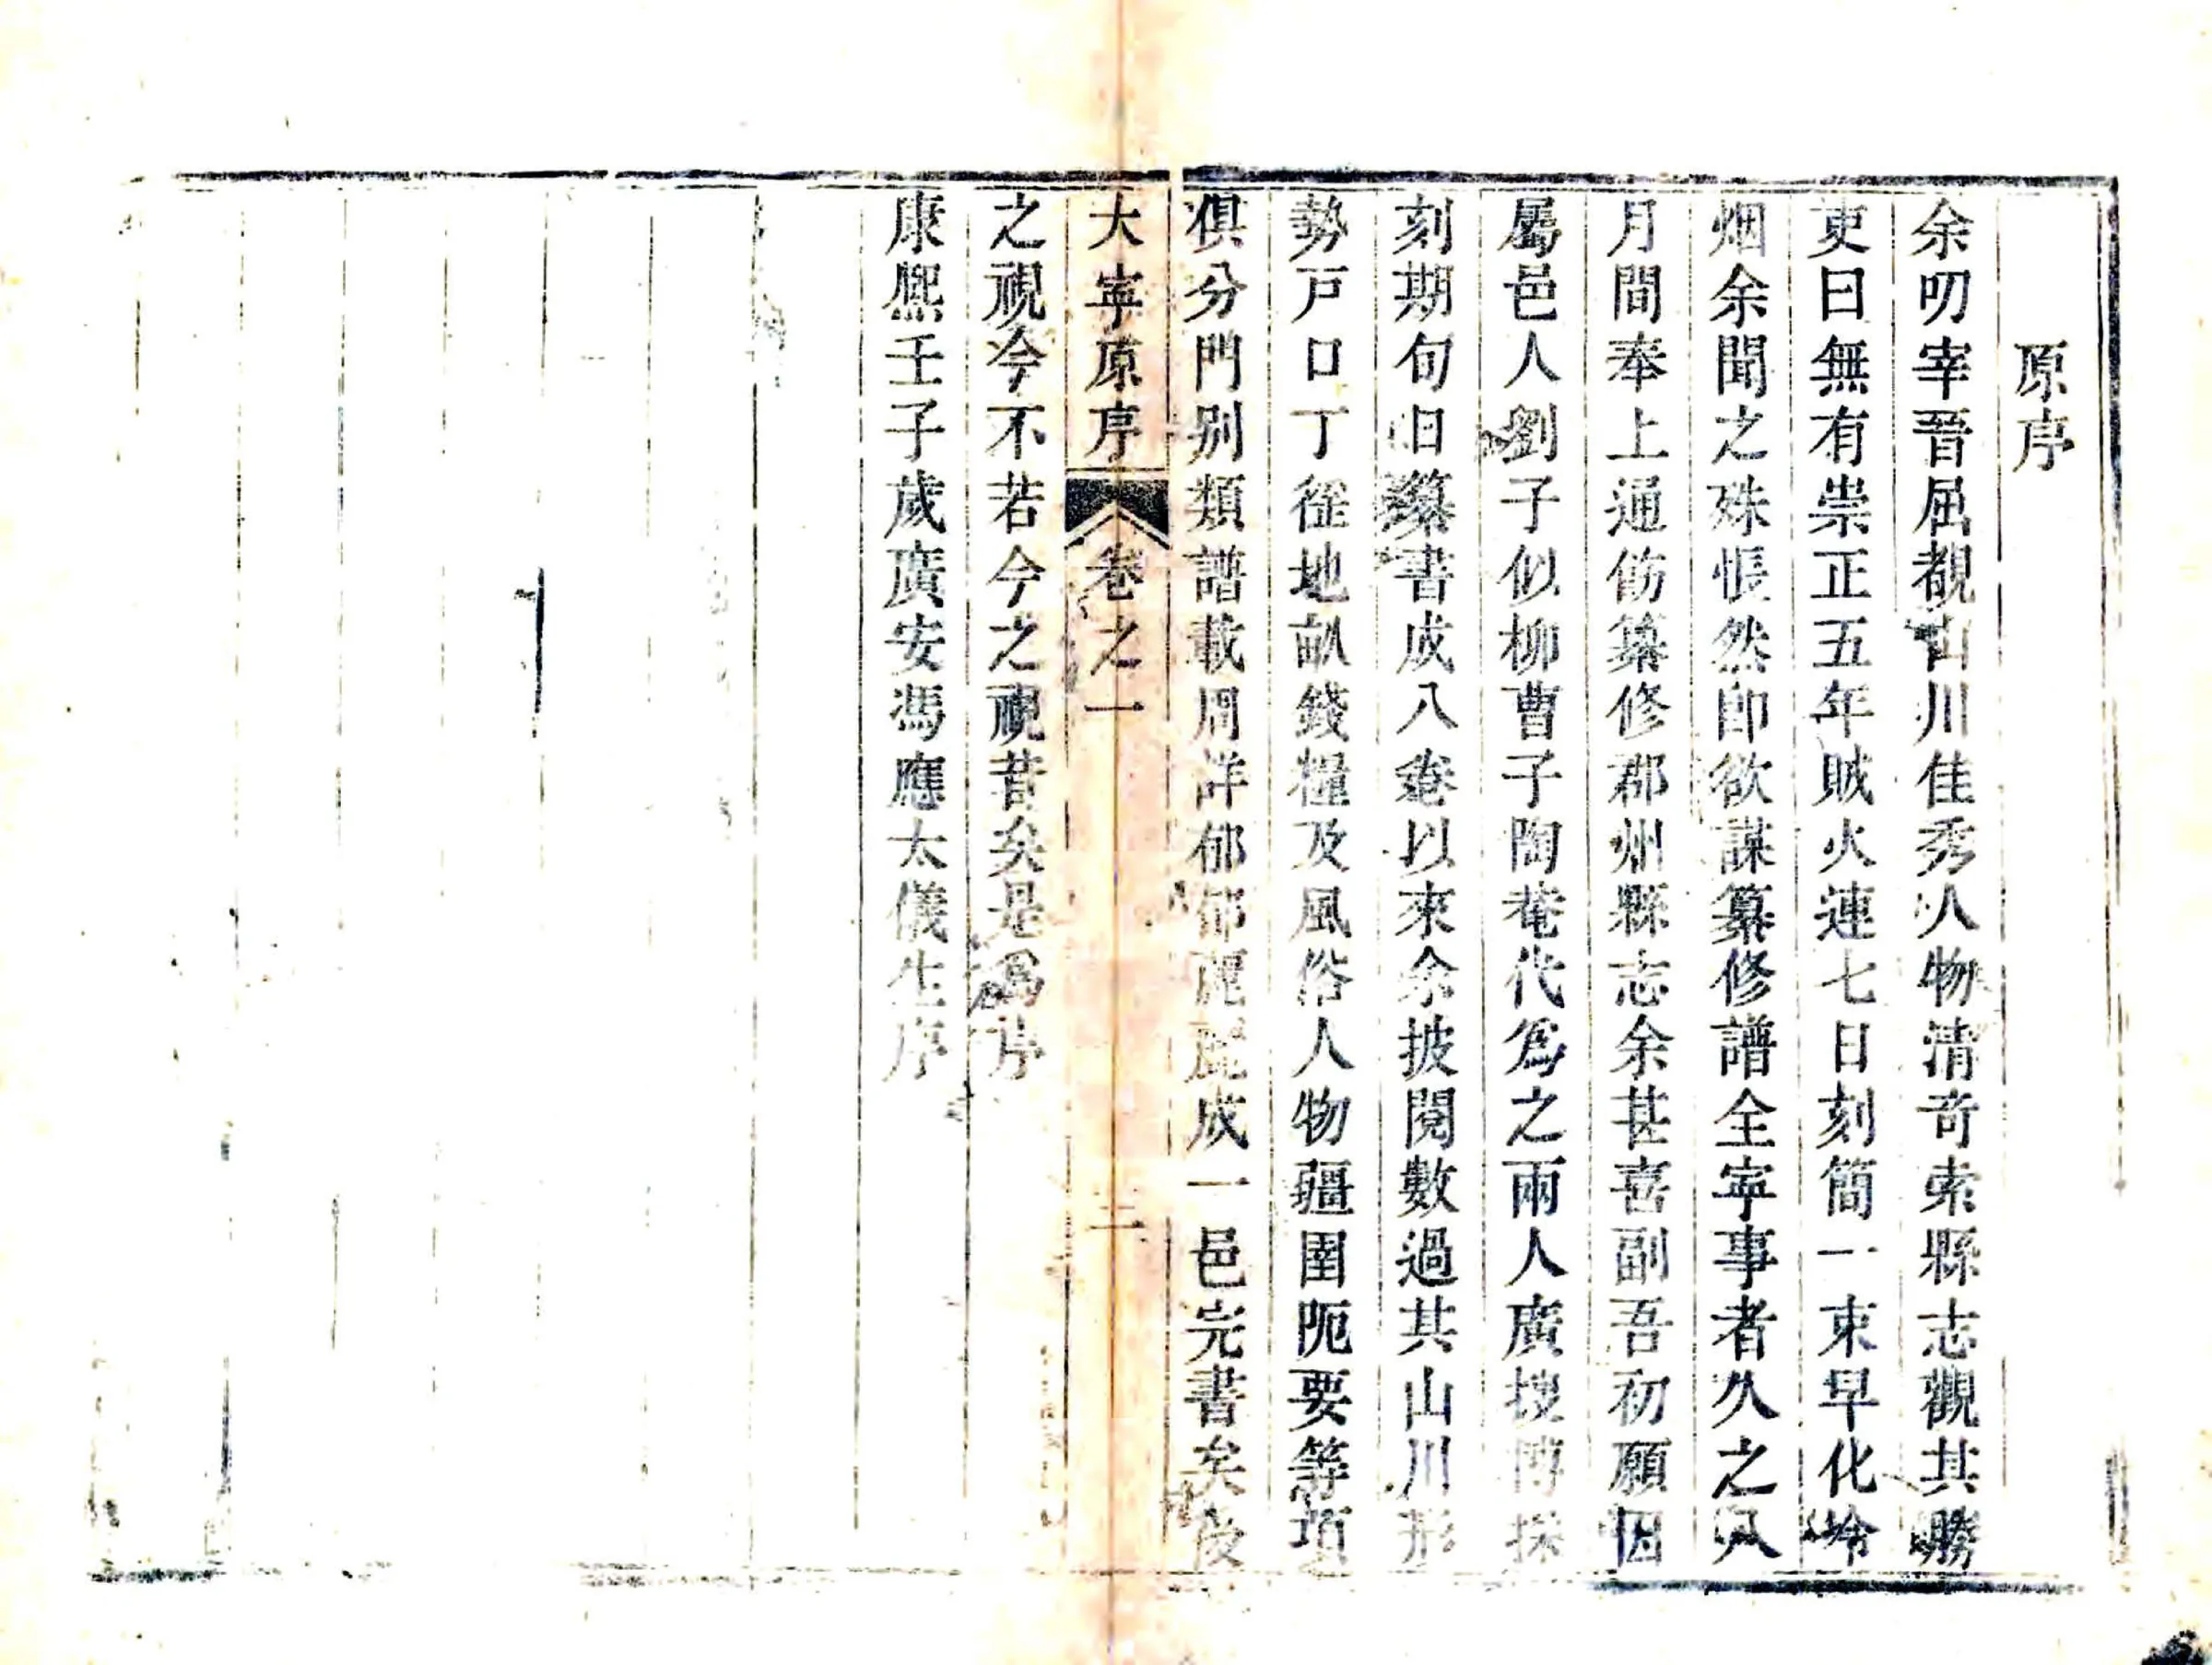 原序
余叨宰晉屈覩山川佳秀人物清奇索縣志觀其勝
吏曰無有崇正五年賊火連七日刻簡一束早化焓
烟余聞之殊悵然即欲謀纂修譜全寕事者久之八
月間奉上通飭纂修郡州縣志余甚喜副吾初願因
屬邑人劉子似柳曹子陶菴代爲之兩人廣搜博採
刻期旬日纂書成八卷以來余披閱數過其山川形
勢戸口丁徭地畝錢糧及風俗人物疆圉阨要等項
俱分門别類譜載周洋郁郁麗麗成一邑完書矣後
大寕原序 卷之一 二
之視今不若今之視昔矣是爲序
康熙壬子歲廣安馮應太儀生序